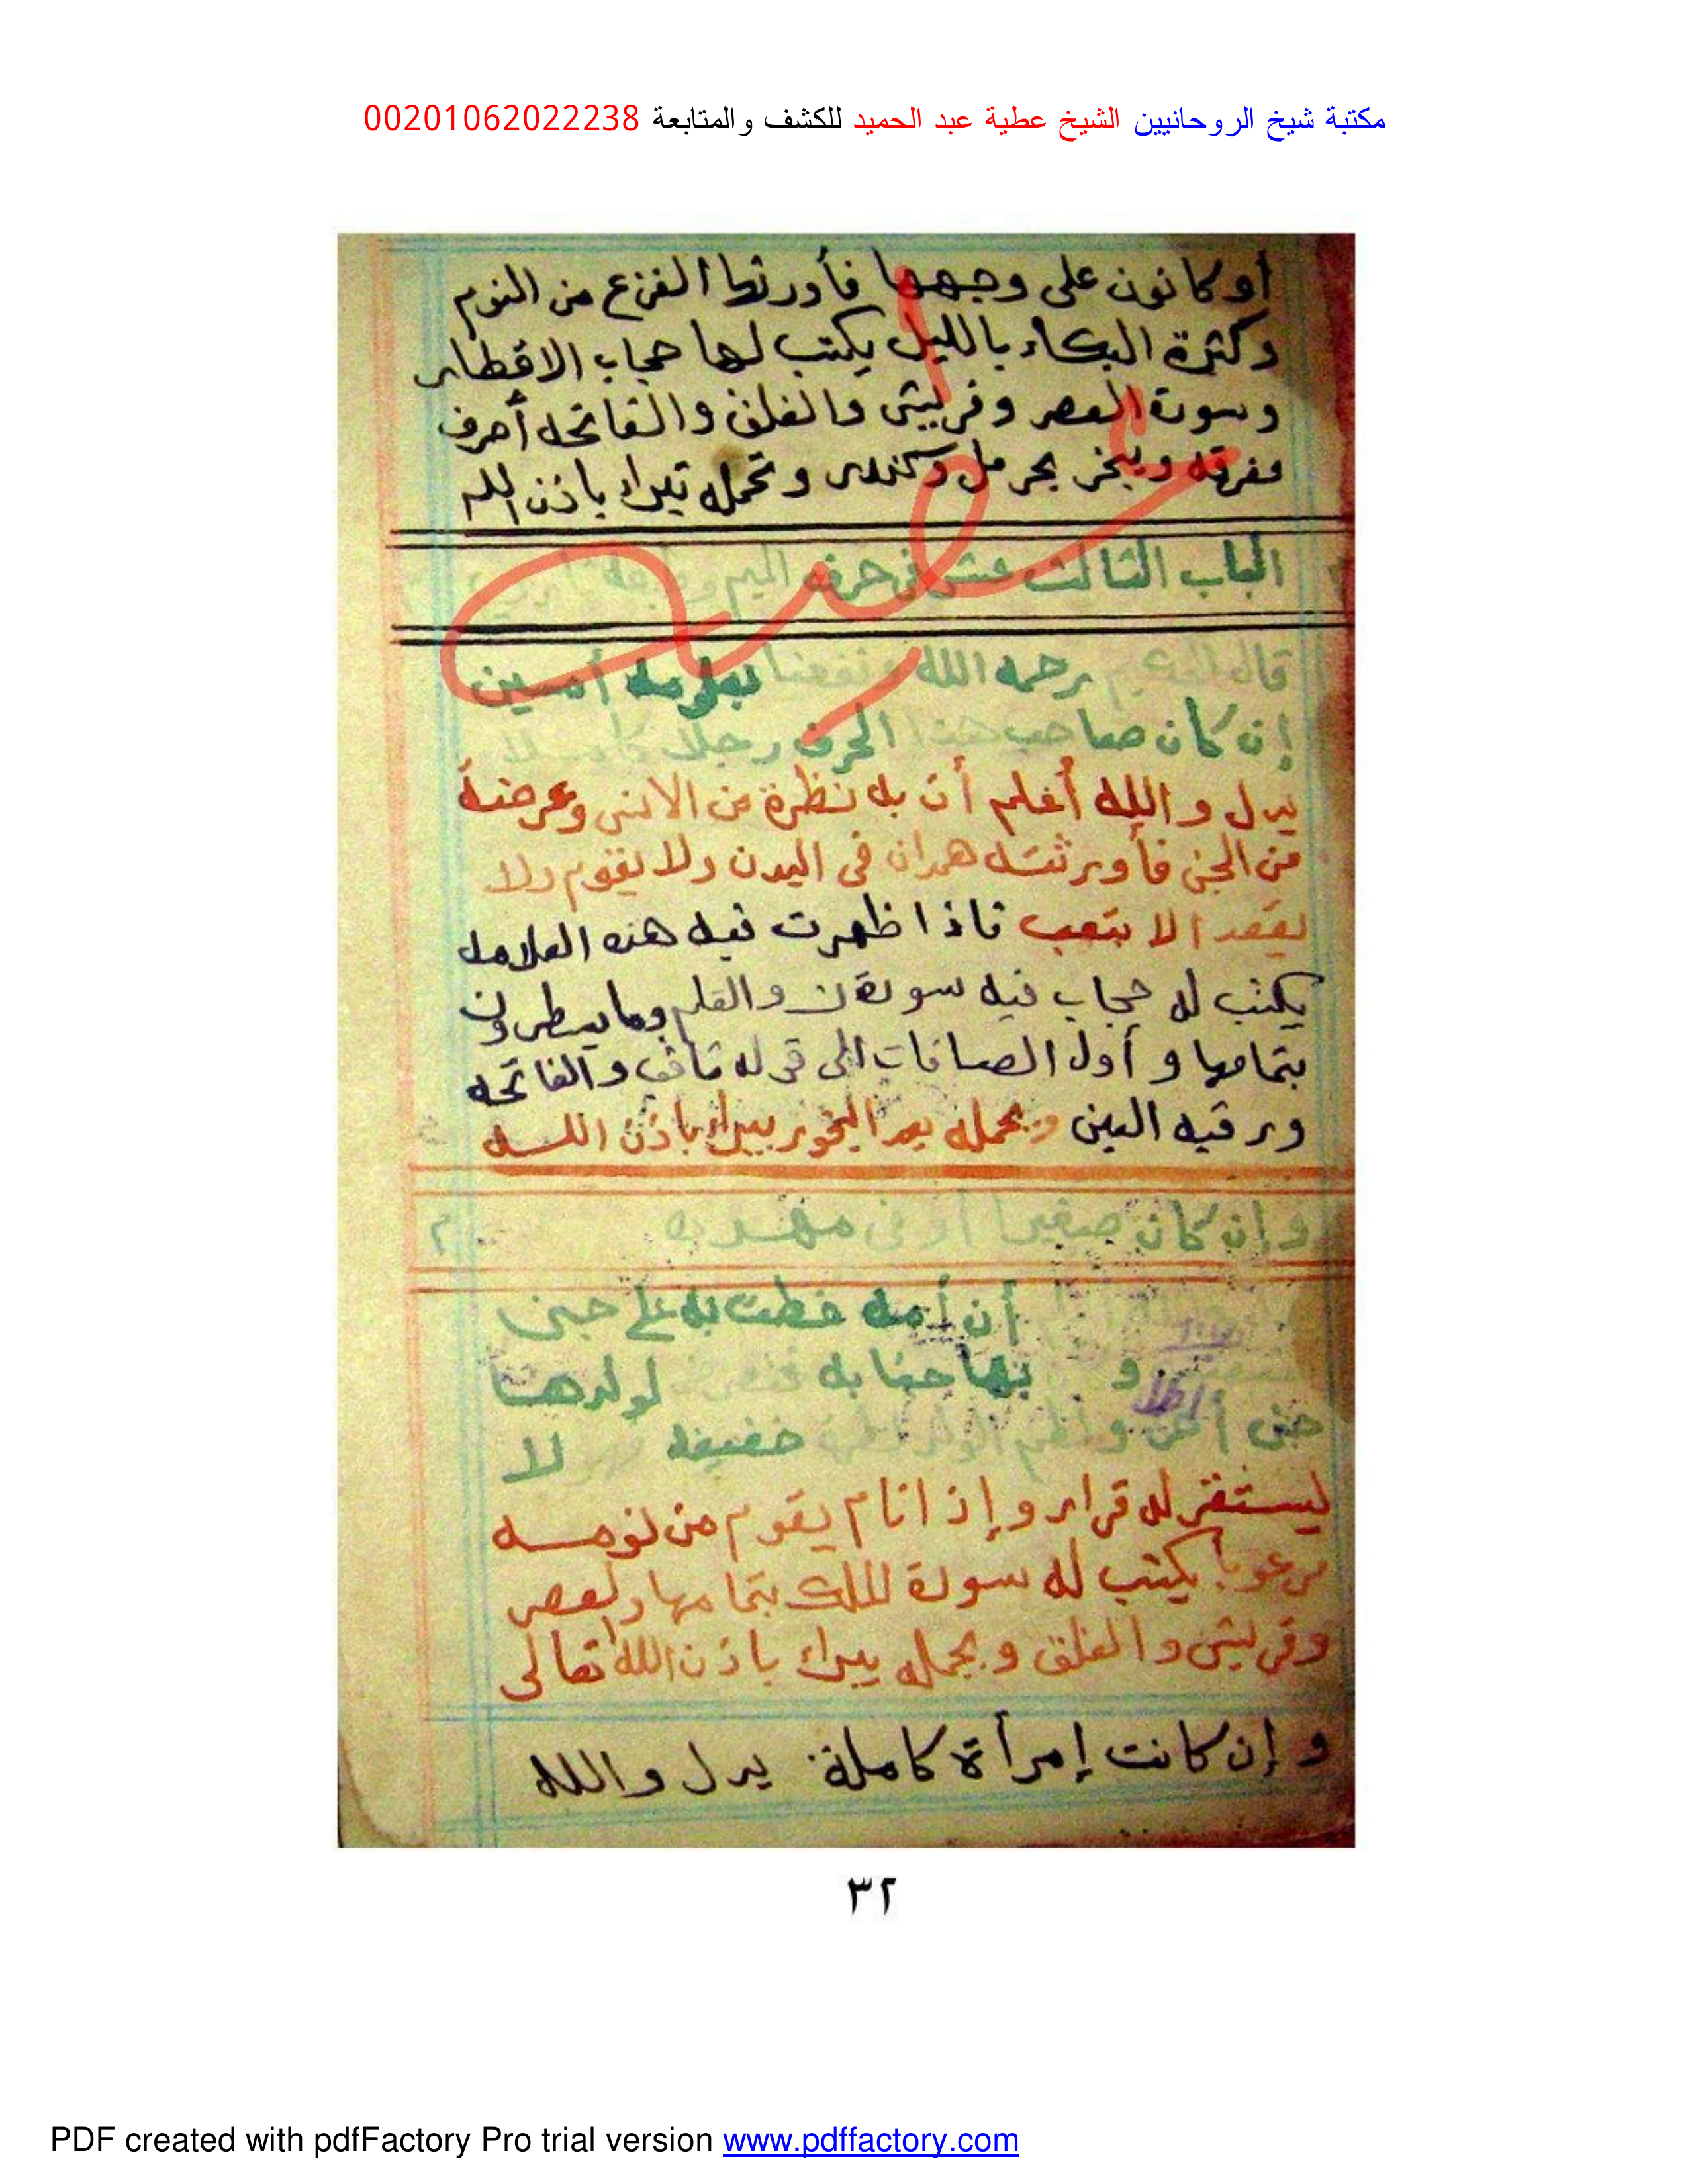 مكتبة شيخ الروحانيين الشيخ عطية عبد الحميد للكشف والمتابعة 00201062022238
أو كانون على وجهها فأورثها الفزع من النوم
وكثرة البكاء بالليل يكتب لها حجاب الاقطار
وسورة العصر وقريش والفلق والفاتحه أحرف
مفرقه ويبخر بحرمل وكندر وتحمله تبراء باذن الله
الباب الثالث عشر فى حرف الميم
قال رحمه الله ونفعنا بعلومه أمين
إن كان صاحب هذا الحرف رجلا كاملا
يدل والله أعلم أن به نظرة من الانس وعرضة
من الجن فأورثته همدان فى البدن ولا يقوم ولا
يقعد الا بتعب فاذا ظهرت فيه هذه العلامه
يكتب له حجاب فيه سورة ن والقلم وما يسطرون
بتمامها و أول الصافات الى قوله ثاقب والفاتحه
ورقيه العين ويحمله بعد البخور يبراء باذن الله
وإن كان صغيرا أو فى مهده
أن أمه خطت به على جبنى
و به لولدها
خفيفه لا
يستقر له قرار وإذا نام يقوم من نومه
مرعوبا يكتب له سورة الملك بتمامها والعصر
وقريش والفلق ويحمله يبراء باذن الله تعالى
و إن كانت إمرأة كاملة يدل والله
٣٢
PDF created with pdfFactory Pro trial version www.pdffactory.com